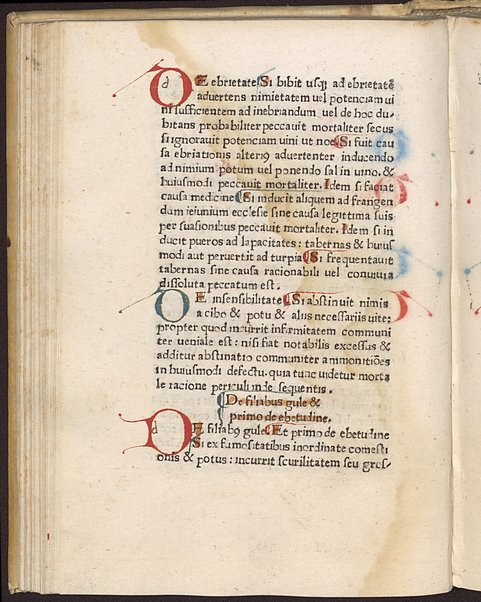 DE ebrietate Si bibit usq; ad ebrietatē
aduertens nimietatem uel potenciam ui
ni sufficientem ad inebriandum uel de hoc du-
bitans probabiliter peccauit mortaliter secus
si ignorauit potenciam uini ut noe Si fuit cau
sa ebriationis alteriꝰ aduertenter inducendo
ad nimium potum uel ponendo sal in uino. &
huiusmodi peccauit mortaliter. Idem si faciat
causa medicine Si inducit aliquem ad frangen
dum ieiunium ecclesie sine causa legittima suis
per suasionibus peccauit mortaliter. Idem si in
ducit pueros ad lapacitates : tabernas & huius
modi aut peruertit ad turpia Si frequentauit
tabernas sine causa racionabili uel conuiuia
dissoluta peccatum est.
DE insensibilitate Si abstinuit nimis
a cibo & potu & aliis necessariis uite:
propter quod incurrit infirmitatem communi
ter ueniale est : nisi fiat notabilis excessus &
additur abstinatio communiter ammonitiōes
in huiusmodi defectu. quia tunc uidetur morta
le racione periculi inde sequentis.
De filiabus gule &
primo de ebetudine.
DE filiabꝰ gule Et primo de ebetudine
Si ex fumositatibus inordinate comesti
onis & potus : incurrit scurilitatem seu gros-